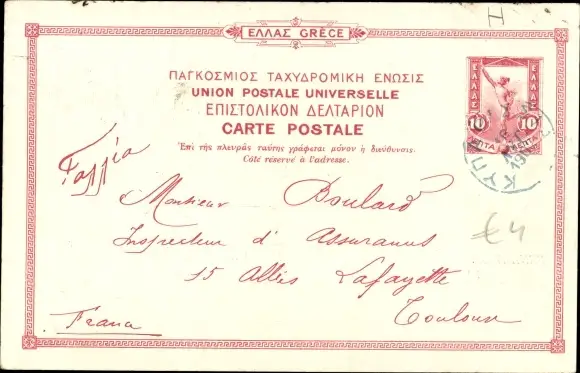 H
ΕΛΛΑΣ GRÈCE
ΠΑΓΚΟΣΜΙΟΣ ΤΑΧΥΔΡΟΜΙΚΗ ΕΝΩΣΙΣ
UNION POSTALE UNIVERSELLE
ΕΠΙΣΤΟΛΙΚΟΝ ΔΕΛΤΑΡΙΟΝ
CARTE POSTALE
Ἐπὶ τῆς πλευρᾶς ταύτης γράφεται μόνον ἡ διεύθυνσις.
Côté réservé à l'adresse.
ΕΛΛΑΣ ΕΛΛΑΣ
10 10
ΛΕΠΤΑ ΛΕΠΤΑ
Γαλλία
Monsieur Boulard
Inspecteur d'Assurances
15 Allées Lafayette
Toulouse
France
€4